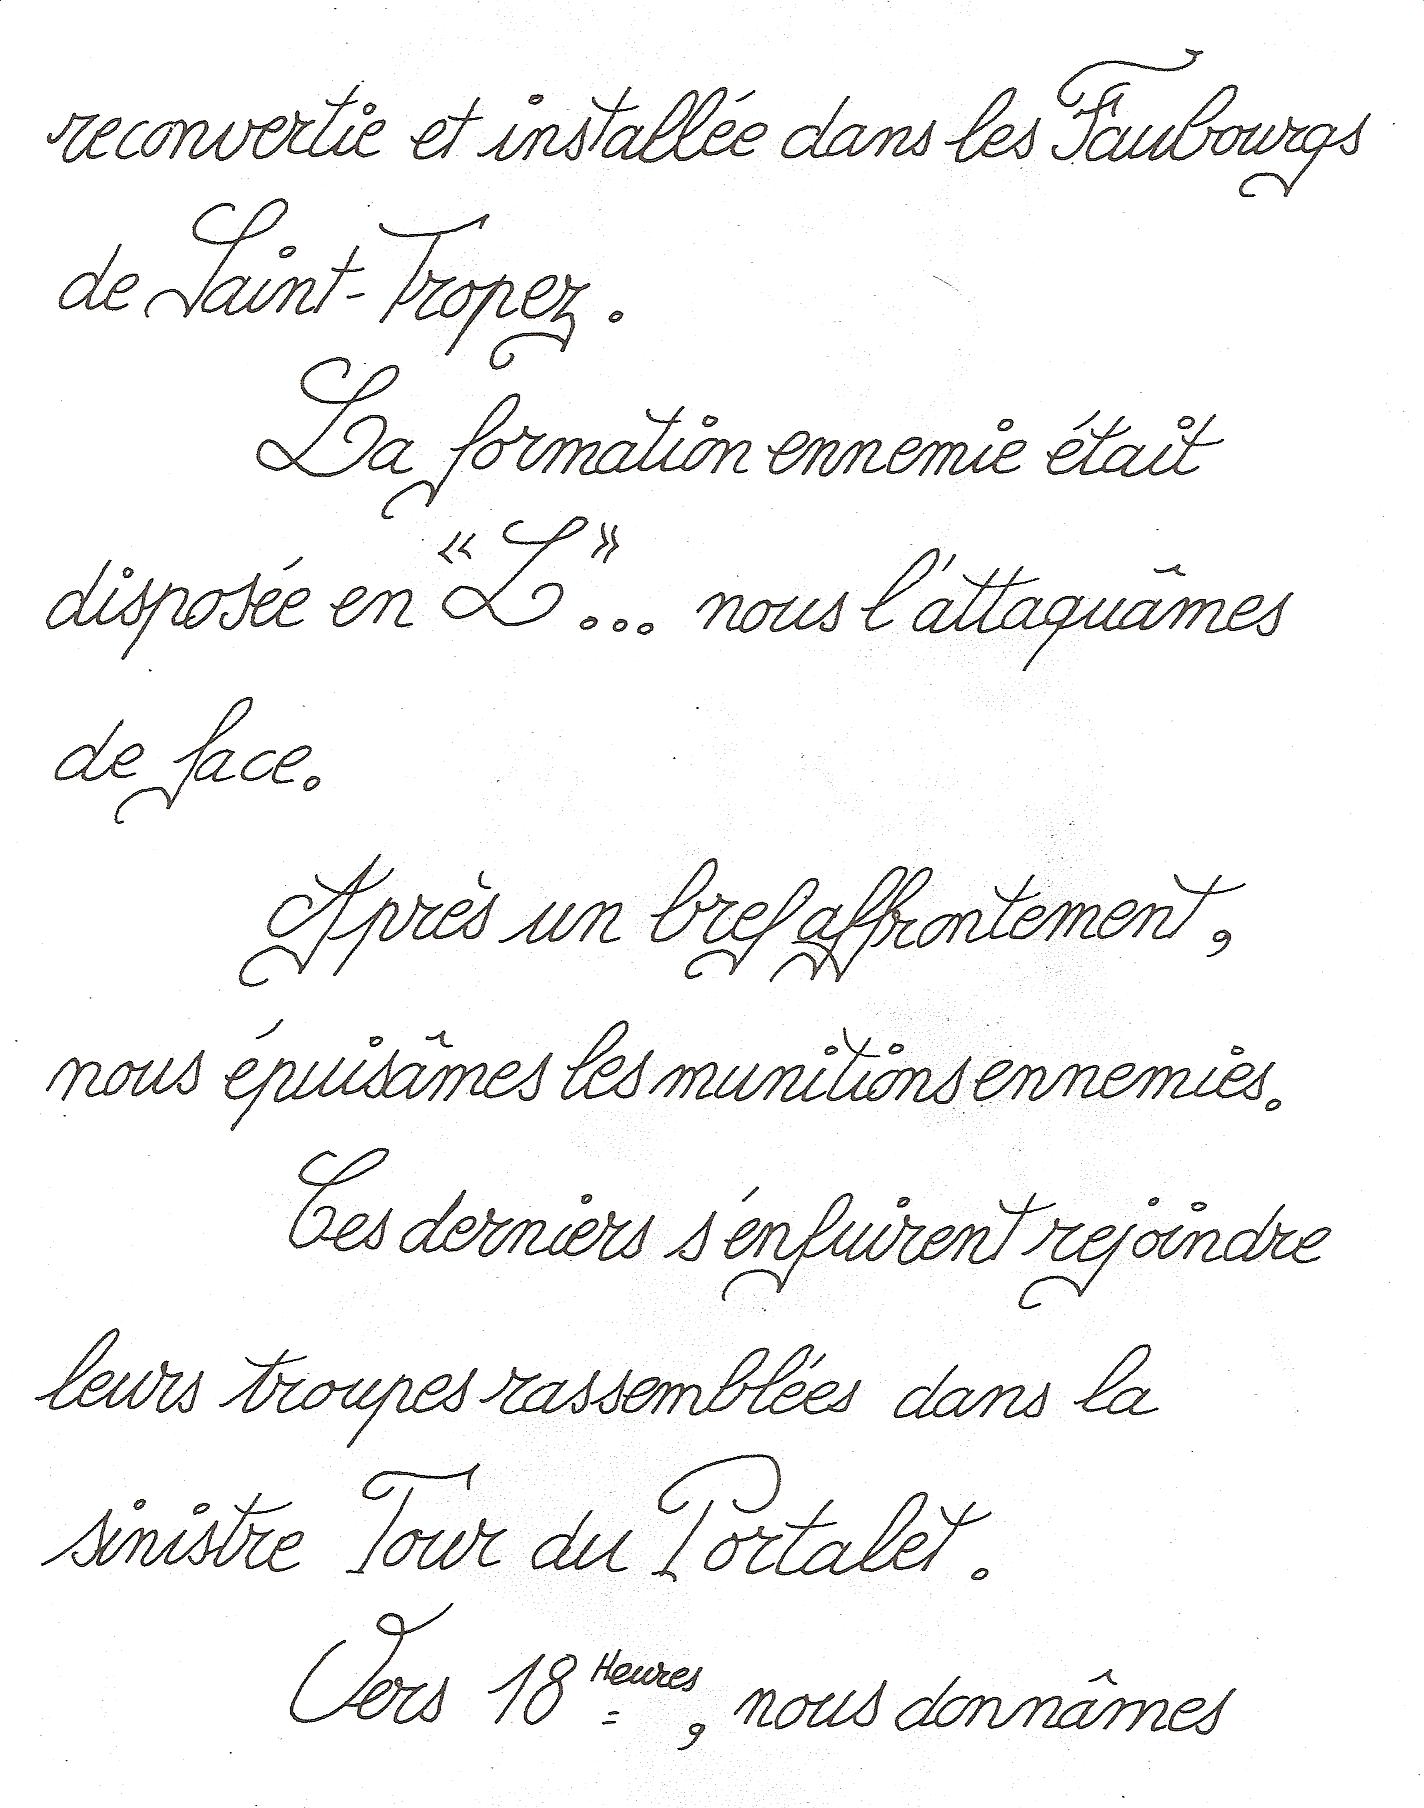 reconvertie et installée dans les Faubourgs
de Saint-Tropez.
La formation ennemie était
disposée en «L»... nous l'attaquâmes
de face.
Après un bref affrontement,
nous épuisâmes les munitions ennemies.
Ces derniers s'enfuirent rejoindre
leurs troupes rassemblées dans la
sinistre Tour du Portalet.
Vers 18 Heures, nous donnâmes